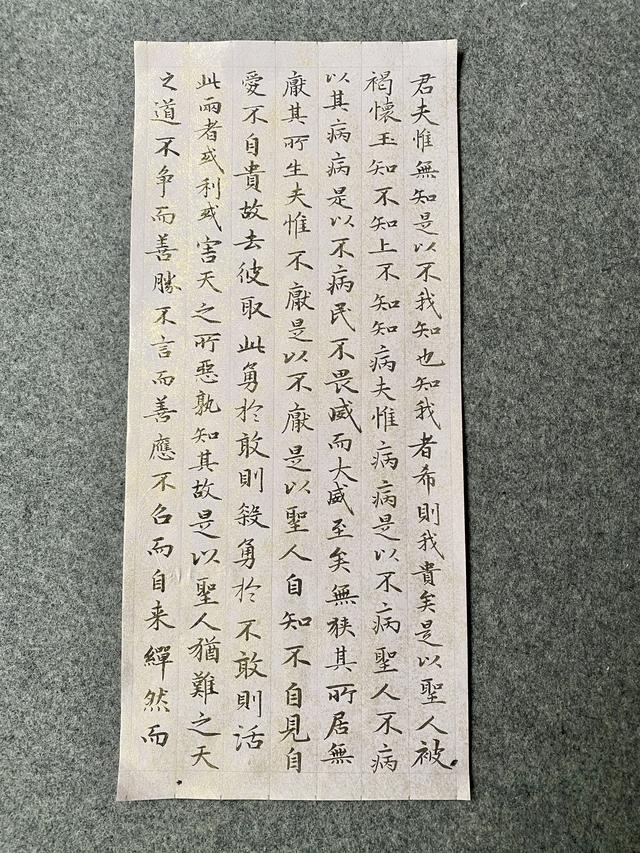 君夫惟無知是以不我知也知我者希則我貴矣是以聖人被
褐懷玉知不知上不知知病夫惟病病是以不病聖人不病
以其病病是以不病民不畏威而大威至矣無狹其所居無
厭其所生夫惟不厭是以不厭是以聖人自知不自見自
愛不自貴故去彼取此勇於敢則殺勇於不敢則活
此兩者或利或害天之所惡孰知其故是以聖人猶難之天
之道不争而善勝不言而善應不召而自来繟然而